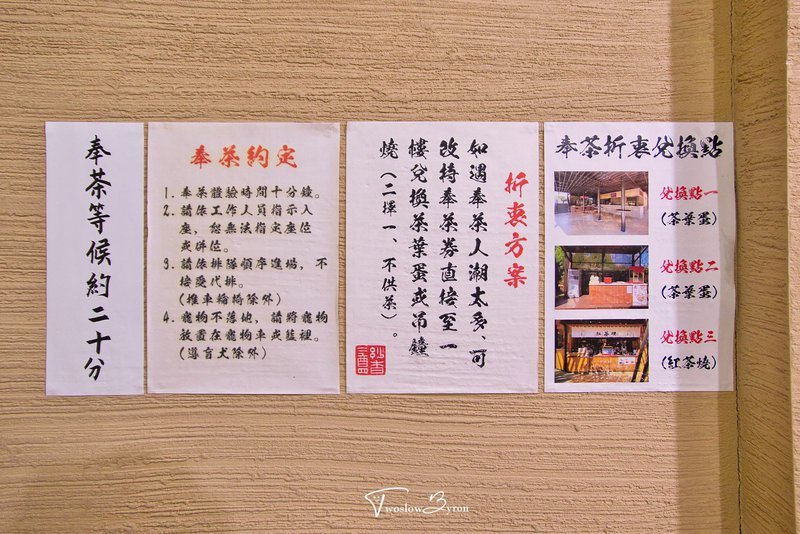 奉茶等候約二十分
奉茶約定
1. 奉茶體驗時間十分鐘。
2. 請依工作人員指示入
座，恕無法指定座位
或併位。
3. 請依排隊順序進場，不
接受代排。
（推車輪椅除外）
4. 寵物不落地，請將寵物
放置在寵物車或籃裡。
（導盲犬除外）
折衷方案
如遇奉茶人潮太多、可
改持奉茶券直接至一
樓兌換茶葉蛋或吊鐘
燒（二擇一、不供茶）。
奉茶折衷兌換點
兌換點一
（茶葉蛋）
兌換點二
（茶葉蛋）
兌換點三
（紅茶燒）
紅茶燒
TwoslowByron